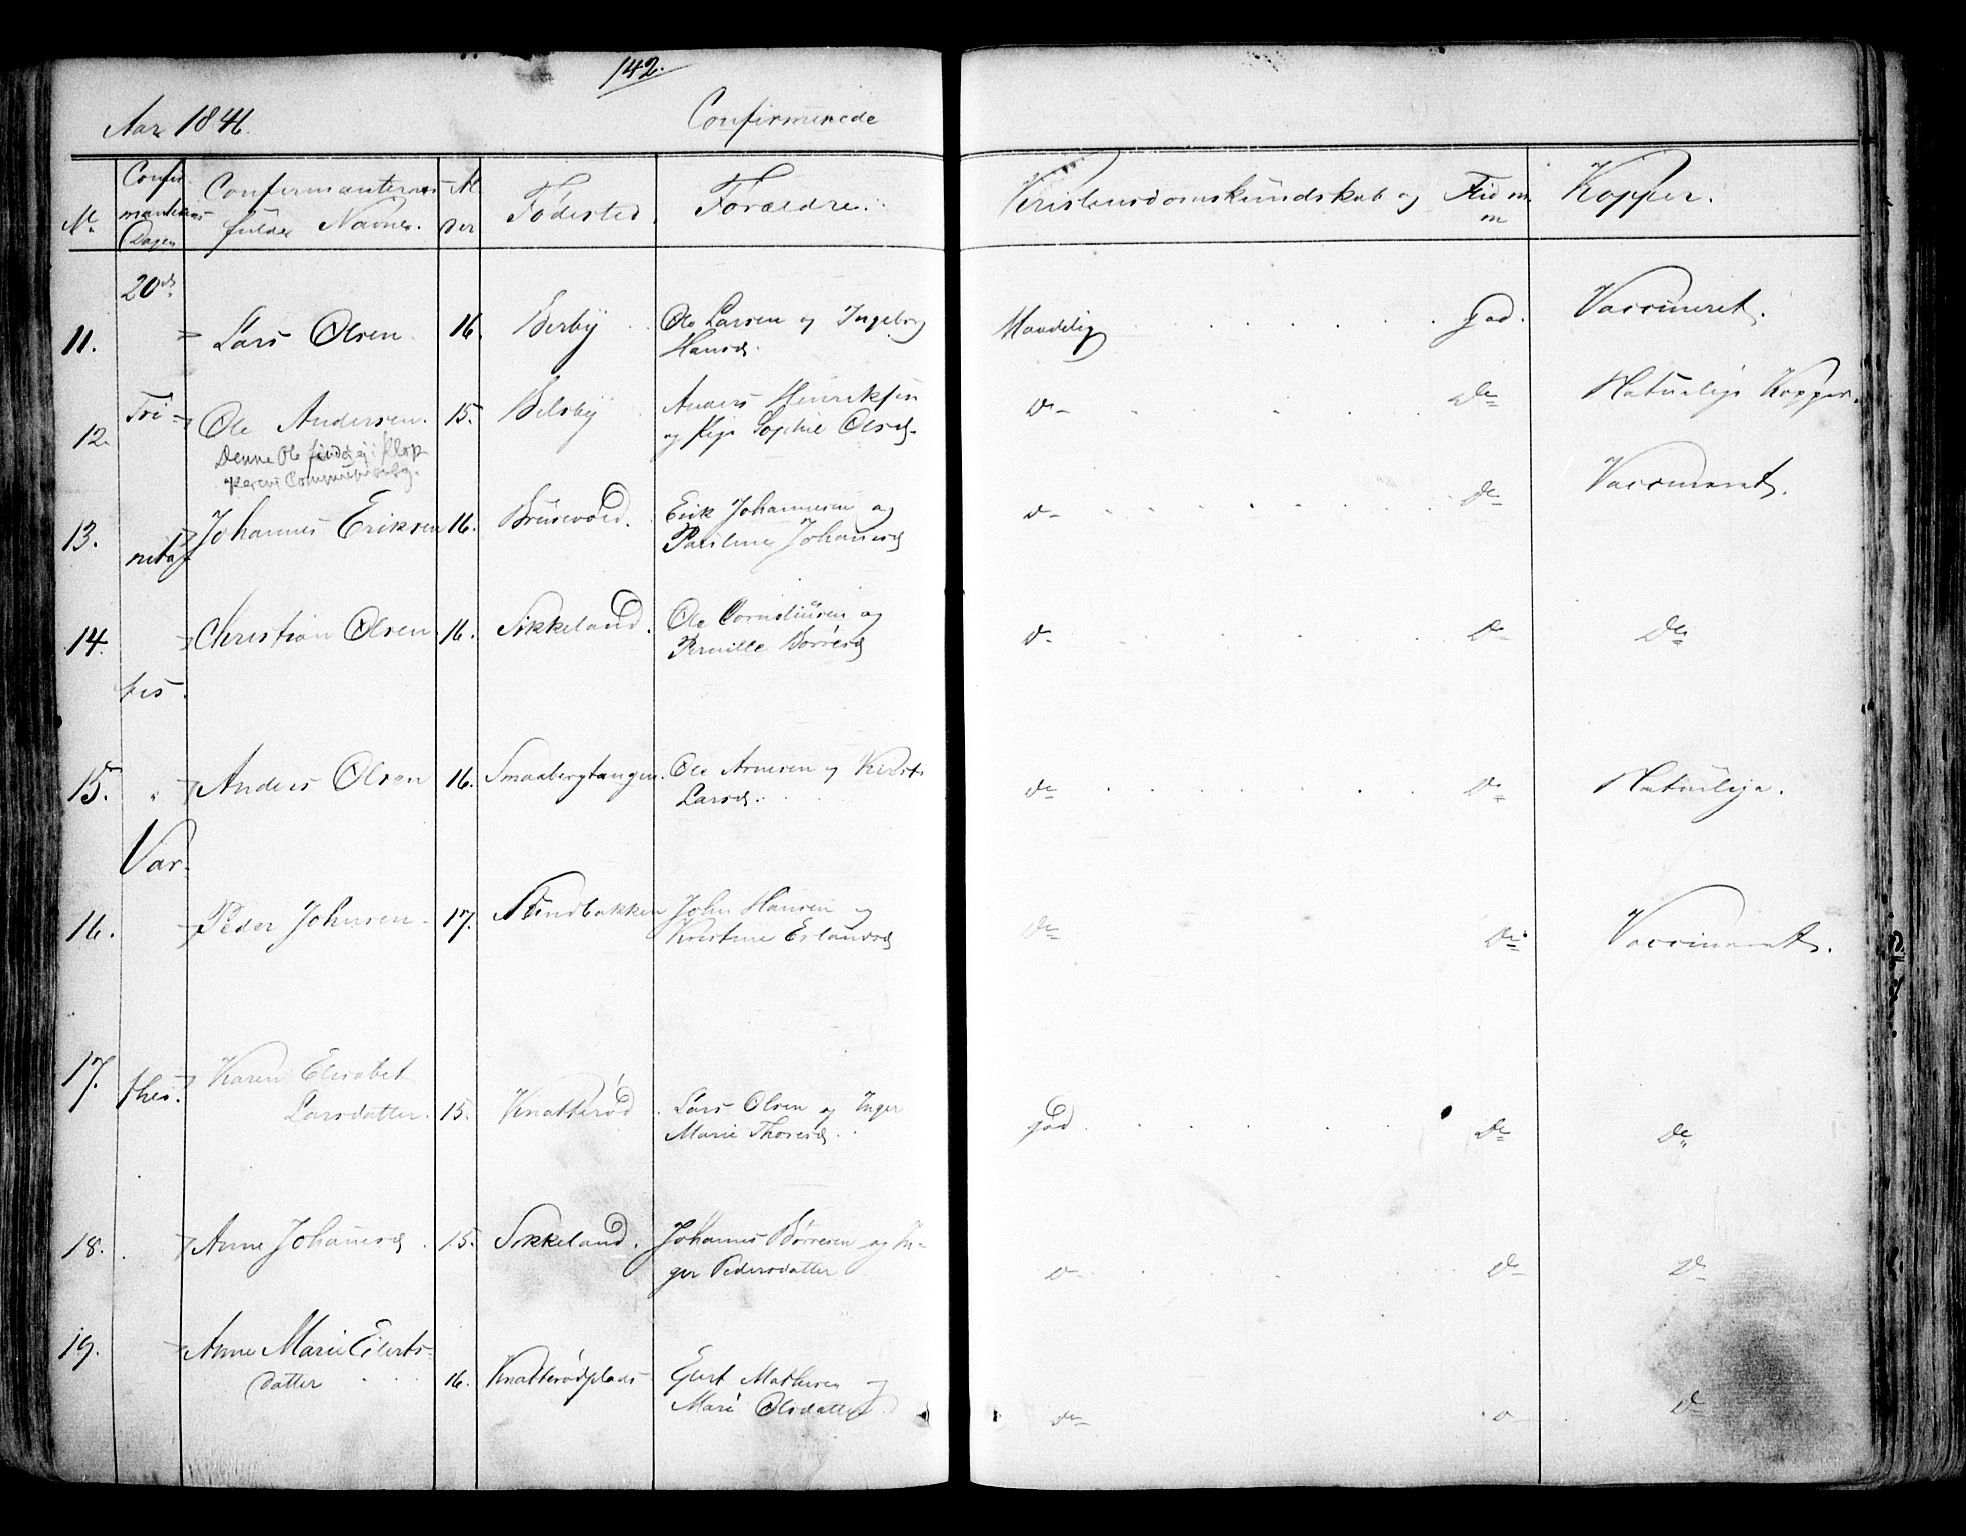 142.
Aar 1846. Confirmerede
No Confirmanternes Dagen Confirmanternes fulde Navne. Alder Fødested. Forældre. Kristensdomskundskab og Flid Kopper.
20de
11. Lars Olsen. 16. Berby Ole Larsen og Ingeborg Maadelig God. Vaccineret.
Hansd.
Tri-
12. Ole Andersen. 15. Anders Henriksen Do Do Naturlige Kopper.
og Sophie Olsd.
Denne Ole findes ej i Klok-
kerens Communionsbog.
13. Johannes Eriksen 16. Erik Johannesen og Do Do Vaccineret.
Pauline Johansd
nitatis
14. Christian Olsen. 16. Sikkeland. Ole Corneliusen og Do Do Do
Pernille Børresd
tis.
15. Anders Olsen 16. Smaabergtangen. Ole Arnesen og Kirsti Do Do Naturlige.
Larsd.
Var.
16. Peder Johnsen 17. John Hansen og Do Do Vaccineret.
Kristine Erlandsd
17. thei. Karen Elisabet
Larsdatter. 15. Knatterød Lars Olsen og Inger God. Do Do
Marie Thoresd.
18. Anne Johansd. 15. Sikkeland. Johannes Børresen og In-
ger Pedersdatter Do Do Do
19. Anne Marie Eilerts-
datter 16. Knatterødplads Mathisen og
Mari Olsdatter Do Do Do